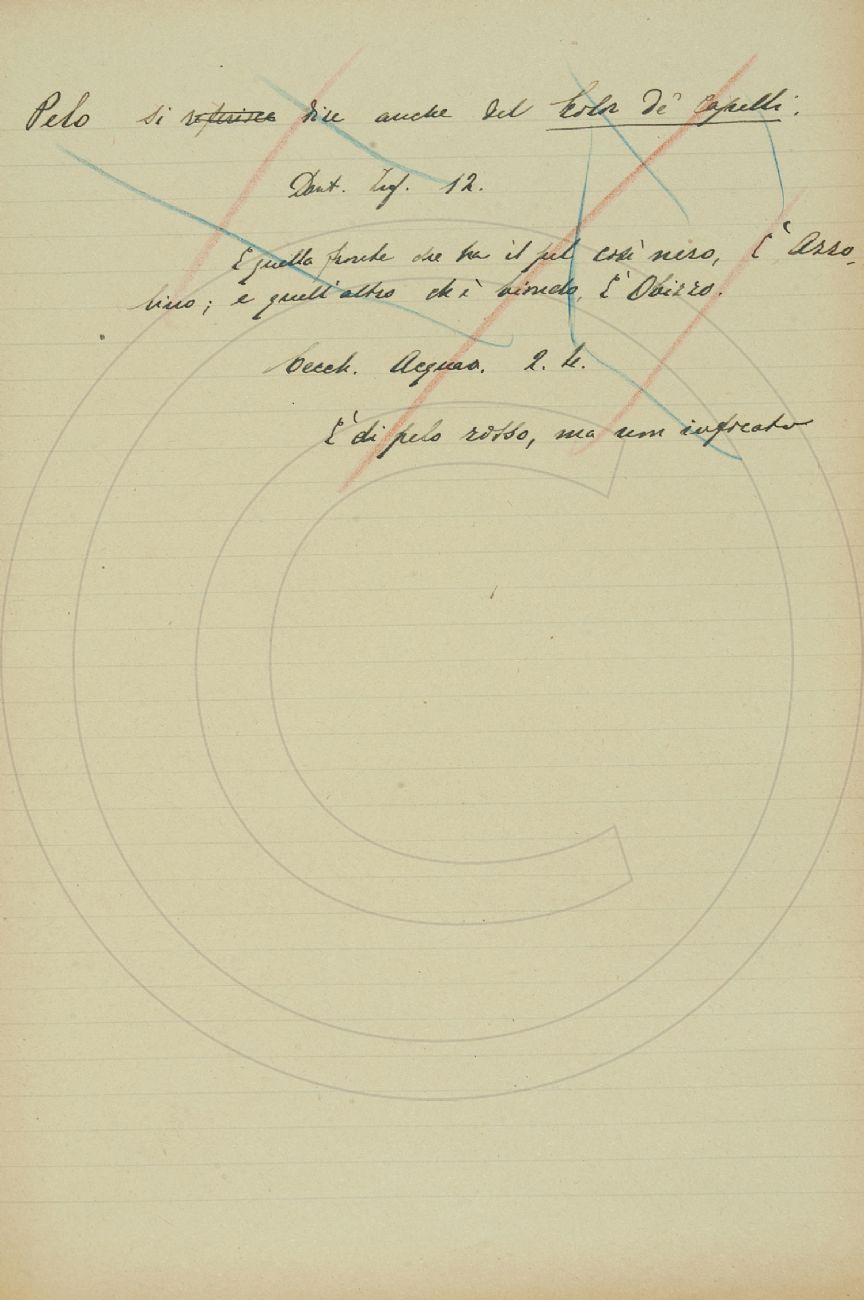 Pelo si riferisce dire anche del Color de' Capelli:
Dant. Inf. 12.
E quella fronte che ha il pel così nero, È Azzo-
lino; e quell'altro ch'è biondo, È Obizzo.
Cecch. Acquav. 2. 4.
È di pelo rosso, ma non infocato